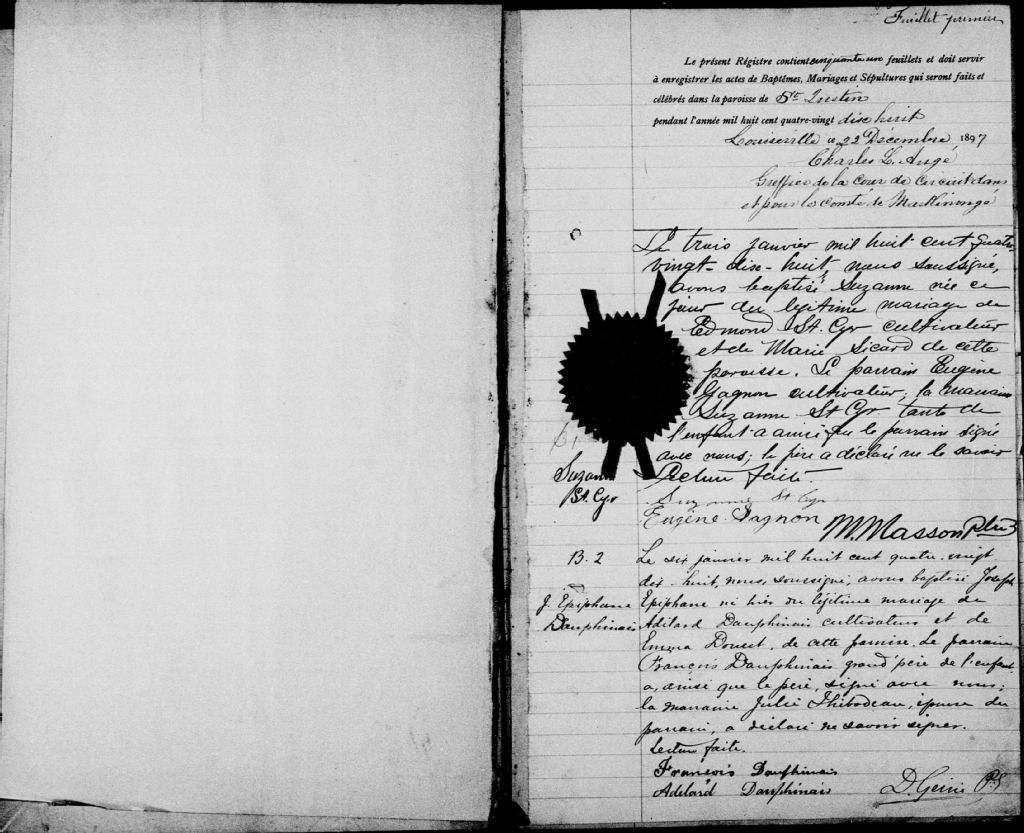 Feuillet premier
Le présent Régistre contient cinquante un feuillets et doit servir
à enregistrer les actes de Baptêmes, Mariages et Sépultures qui seront faits et
célébrés dans la paroisse de St. Justin
pendant l'année mil huit cent quatre-vingt dix huit
Louiseville ce 22 Décembre 1897
Charles L.
Greffier de la Cour de Circuit dans
et pour le comté de Maskinongé
Le trois janvier mil huit cent quatre
vingt-dix-huit, nous soussigné,
avons baptisé Suzanne née ce
jour du légitime mariage de
Edmond St. Cyr cultivateur
et de Marie Sicard de cette
paroisse. Le parrain Eugène
Gagnon cultivateur, la marraine
Suzanne St Cyr tante de
l'enfant a ainsi que le parrain signé
avec nous; le père a déclaré ne le savoir
Suzanne
Lecture faite.
St. Cyr
Suzanne St Cyr
Eugène Gagnon
M. Masson Ptre
B. 2
Le six janvier mil huit cent quatre-vingt
dix-huit, nous, soussigné, avons baptisé Joseph
J. Epiphane
Epiphane né hier du légitime mariage de
Dauphinais
Adélard Dauphinais cultivateur et de
Emma Doucet, de cette paroisse. Le parrain
François Dauphinais grand'père de l'enfant
a, ainsi que le père, signé avec nous;
la marraine Julie Thibodeau, épouse du
parrain, a déclaré ne savoir signer.
Lecture faite.
François Dauphinais
Adélard Dauphinais
D. Gérin